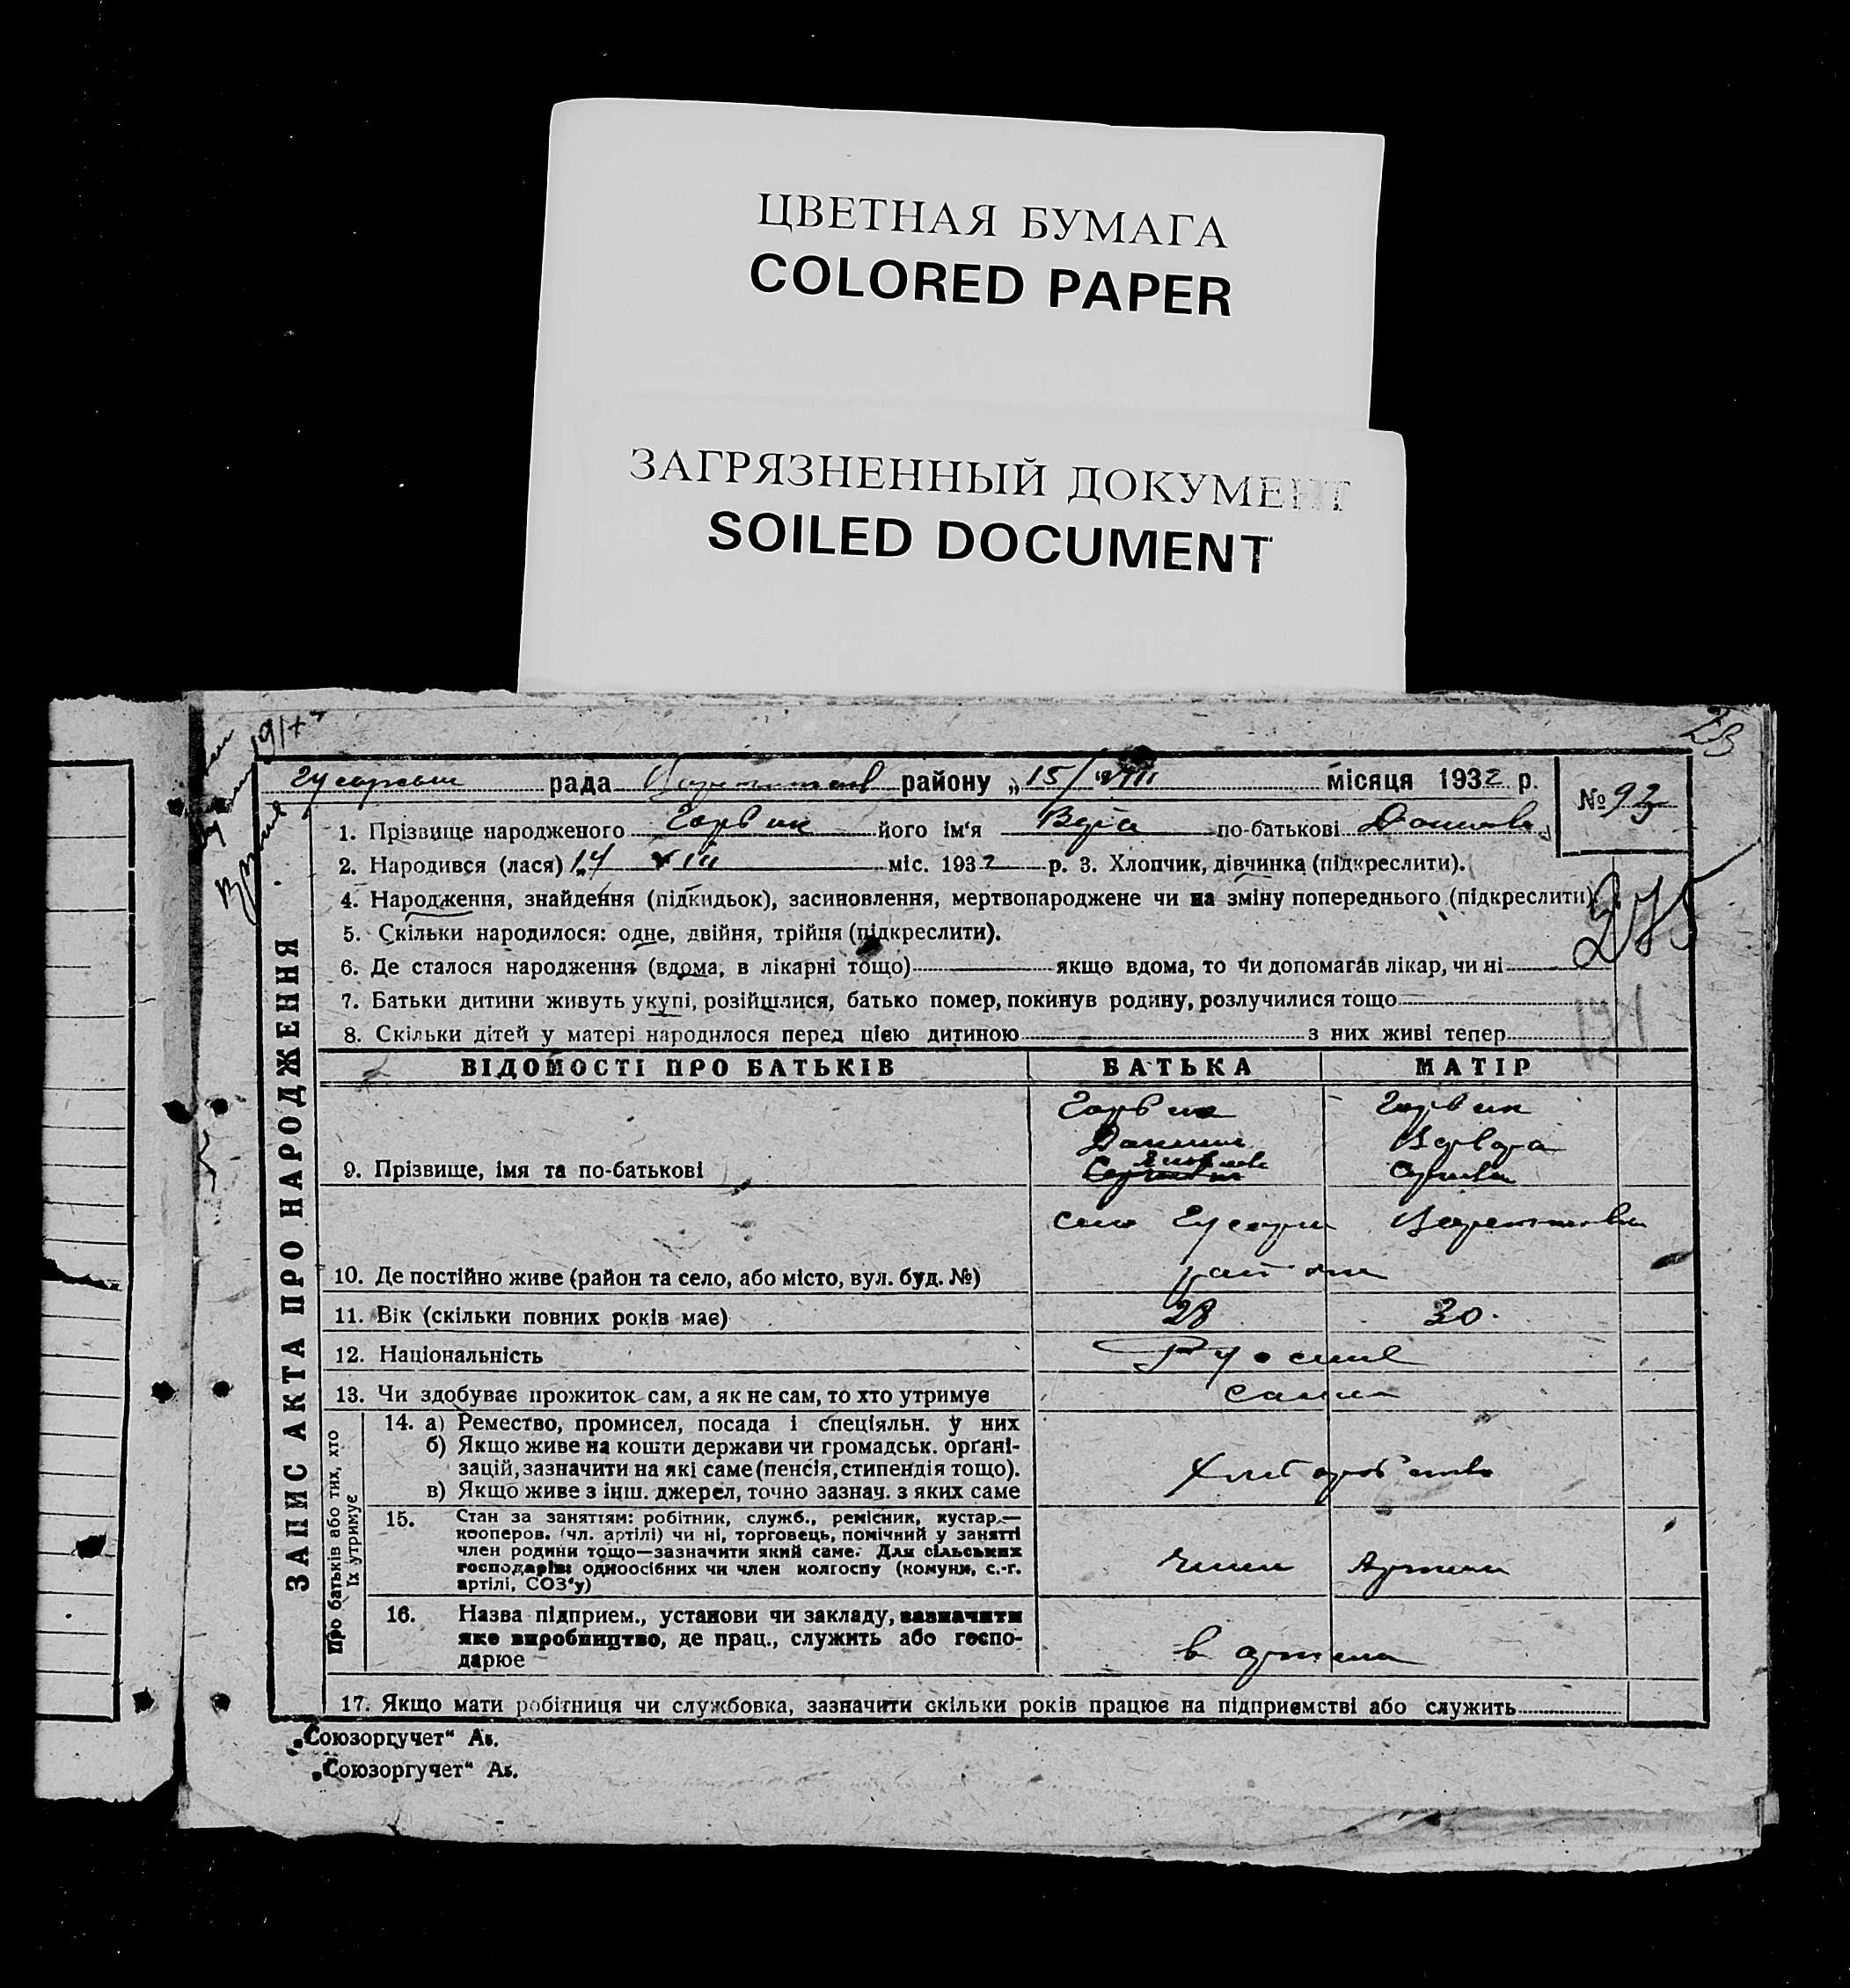 ЦВЕТНАЯ БУМАГА
COLORED PAPER
ЗАГРЯЗНЕННЫЙ ДОКУМЕНТ
SOILED DOCUMENT
23
рада району „15/VIII місяця 1932 р.
№ 93
1. Прізвище народженого його ім‘я Вера по-батькові
2. Народився (лася) 14 VIII міс. 1932 р. 3. Хлопчик, дівчинка (підкреслити).
4. Народження, знайдення (підкидьок), засиновлення, мертвонароджене чи на зміну попереднього (підкреслити).
275
5. Скільки народилося: одне, двійня, трійня (підкреслити).
6. Де сталося народження (вдома, в лікарні тощо) якщо вдома, то чи допомагав лікар, чи ні
7. Батьки дитини живуть укупі, розійшлися, батько помер, покинув родину, розлучилися тощо
8. Скільки дітей у матері народилося перед цією дитиною з них живі тепер
ЗАПИС АКТА ПРО НАРОДЖЕННЯ
ВІДОМОСТІ ПРО БАТЬКІВ БАТЬКА МАТІР
Варвара
9. Прізвище, імя та по-батькові
село
10. Де постійно живе (район та село, або місто, вул. буд. №) район
11. Вік (скільки повних років має) 28 30.
12. Національність
13. Чи здобуває прожиток сам, а як не сам, то хто утримує сами
Про батьків або тих, хто їх утримує
14. а) Ремество, промисел, посада і спеціяльн. у них
б) Якщо живе на кошти держави чи громадськ. органі-
зацій, зазначити на які саме (пенсія, стипендія тощо).
в) Якщо живе з інш. джерел, точно зазнач. з яких саме
15. Стан за заняттям: робітник, служб., ремісник, кустар—
кооперов. (чл. артілі) чи ні, торговець, помічний у занятті
член родини тощо—зазначити який саме. Для сільських
господарів: одноосібних чи член колгоспу (комуни, с.-г.
артілі, СОЗ‘у)
члени Артели
16. Назва підприєм., установи чи закладу, зазначити
яке виробництво, де прац., служить або госпо-
дарює
в артели
17. Якщо мати робітниця чи службовка, зазначити скільки років працює на підприємстві або служить
„Союзоргучет“ Аз.
„Союзоргучет“ Аз.